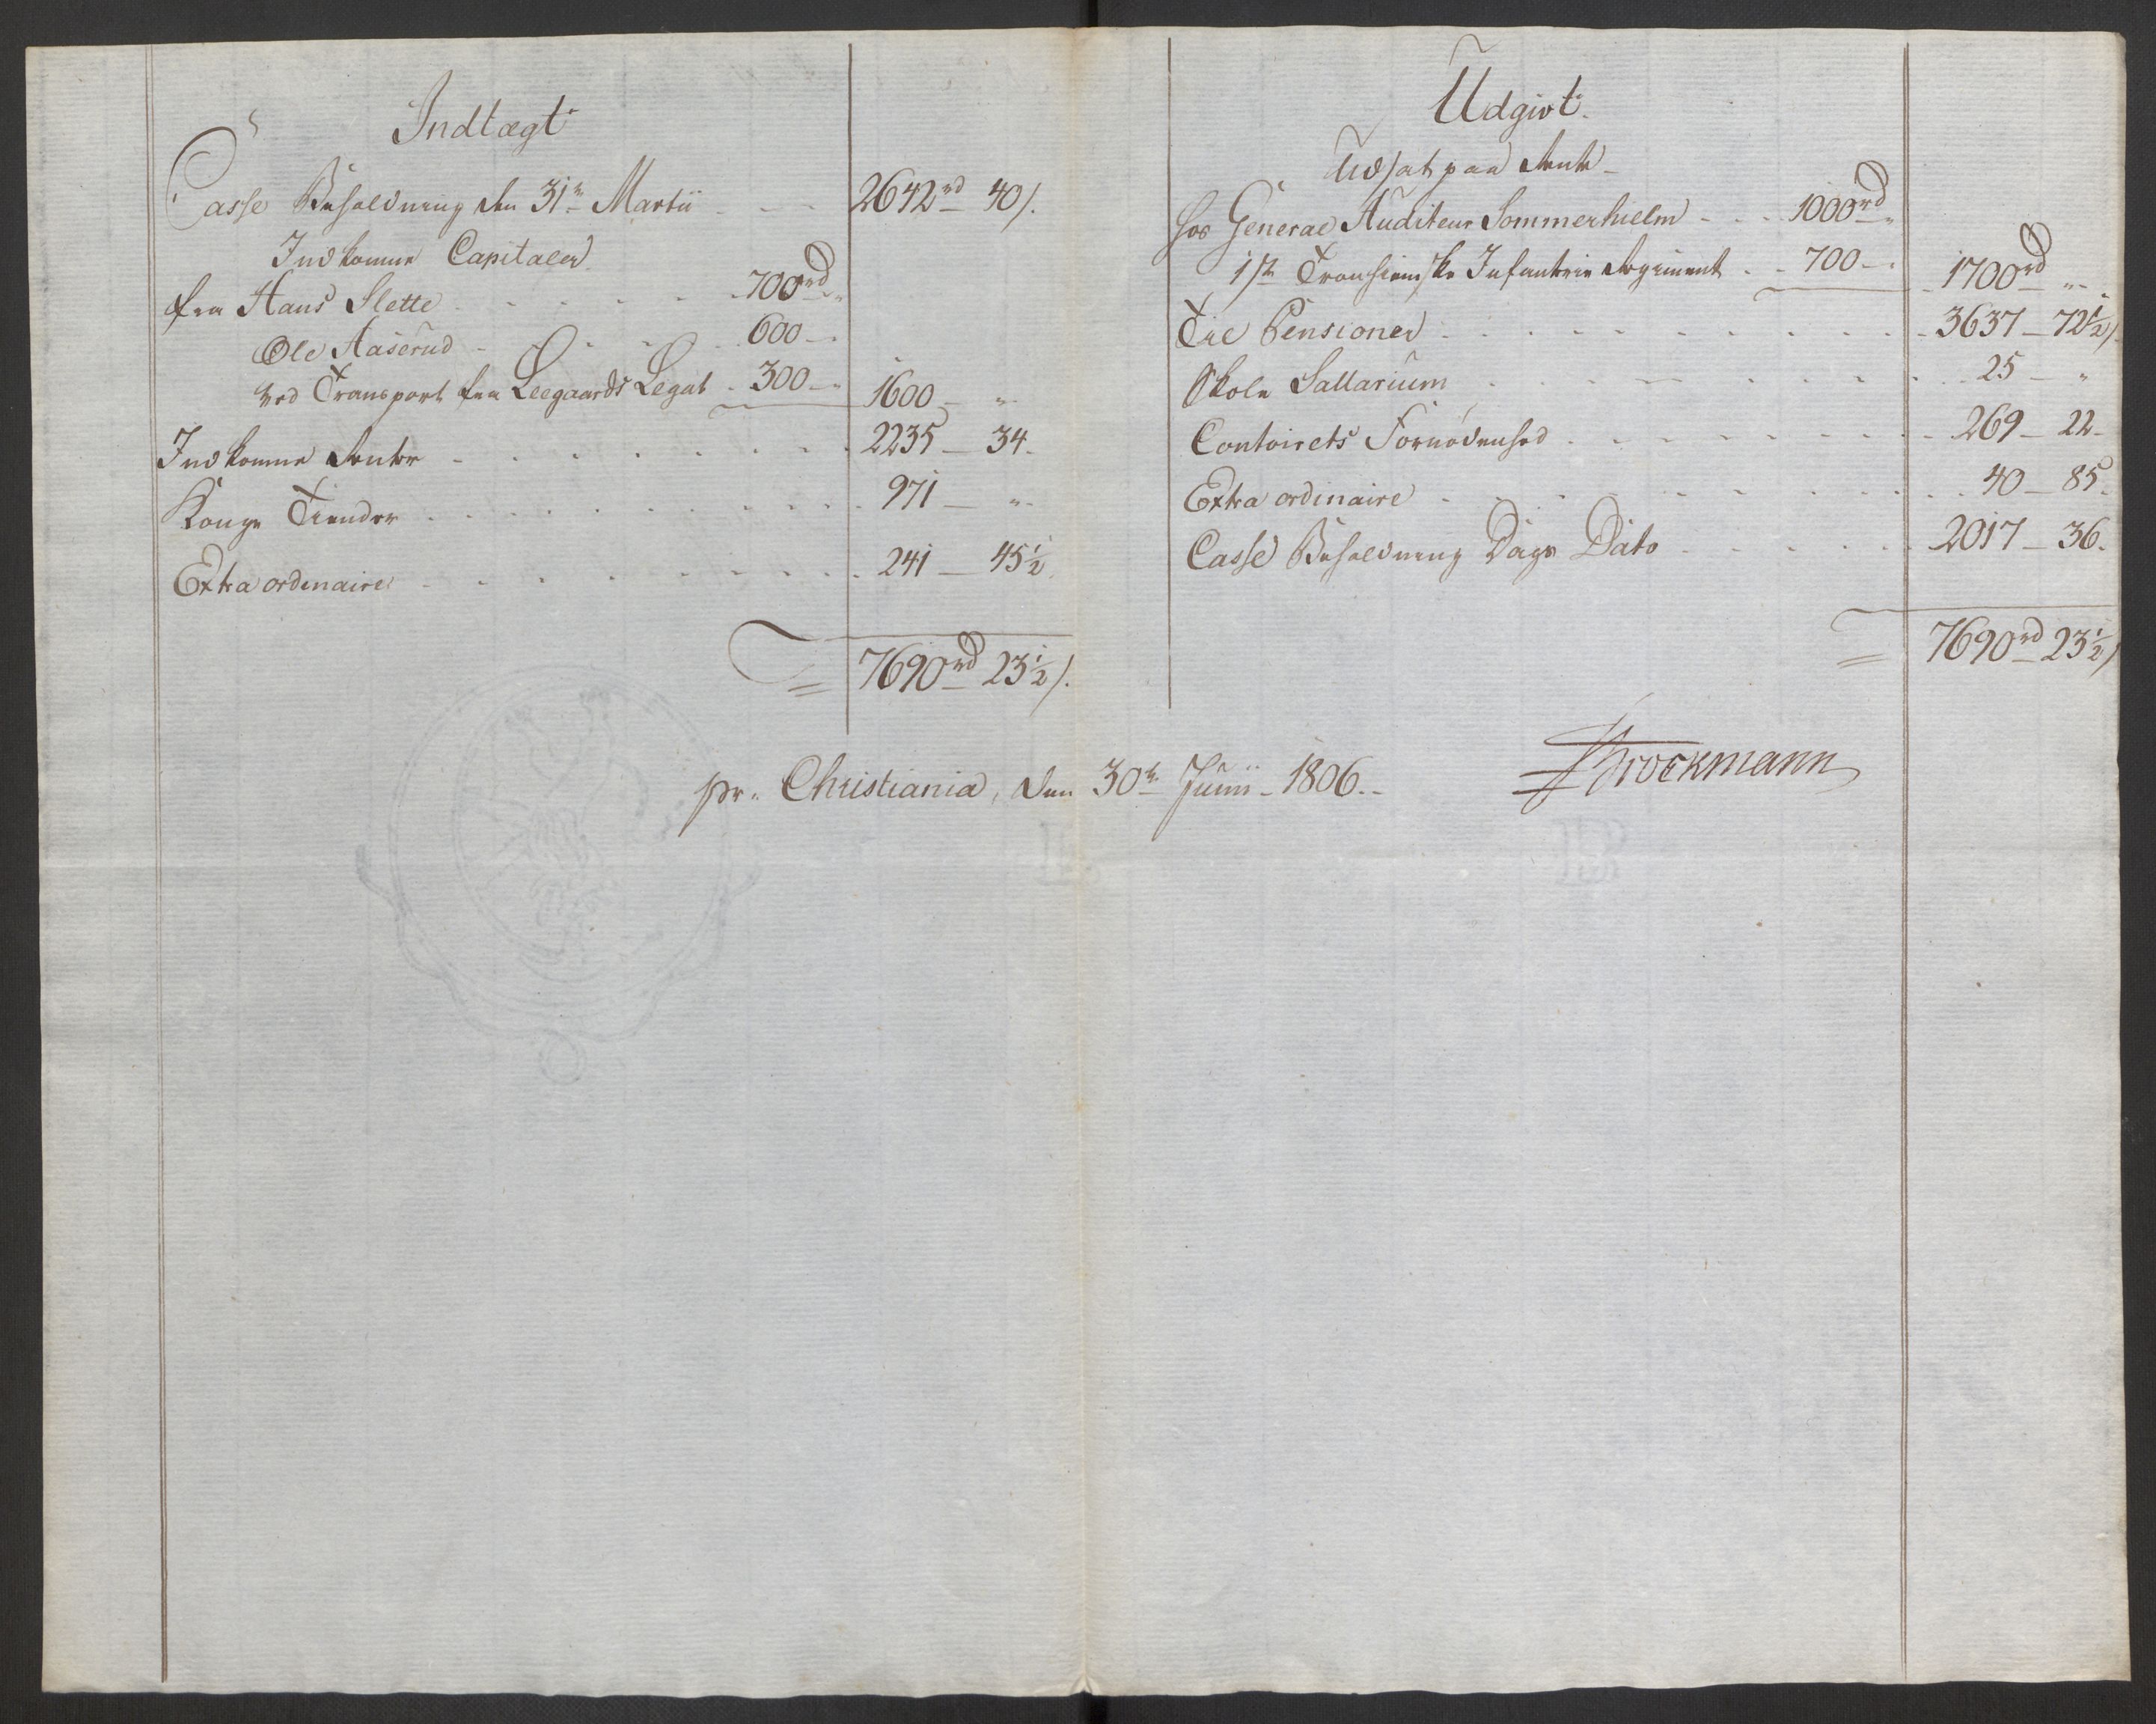 Indtægt
Casse Beholdning den 31te Martii - - - 2642rd 40s.
Indkomne Capitaler
fra Hans Slette - - - 700rd "
Ole Aaserud - - - 600 - "
ved Transport fra Leegaards Legat - 300 - " 1600 - "
Indkomne Renter - - - 2235 - 34.
Konge Tiender - - - 971 - "
Extra ordenaire - - - 241 - 45½
= 7690rd 23½s.
Udgivt.
Udsat paa Rente -
hos General Auditeur Sommerhielm - - - 1000rd "
1ste Tronhiemske Infanterie Regiment - - 700 - " 1700rd "
Til Pensioner - - - 3637 - 72½s.
Skole Sallarium - - - 25 - "
Contoirets Fornødenhed - - - 269 - 22 -
Extra ordinaire - - - 40 - 85.
Casse Beholdning Dags Dato - - - 2017 - 36.
= 7690rd 23½s
pr. Christiania, den 30te Junii - 1806. -
Brockmann